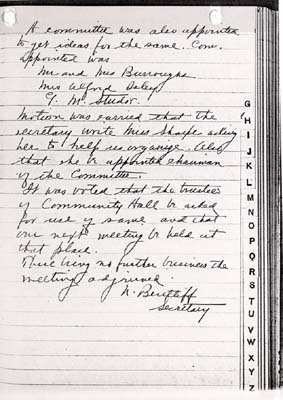 A committee was also appointed
to get ideas for the same. Com.
Appointed was
Mr and Mrs Burroughs
Mrs Alford Daley
G. M. Studor.
Motion was carried that the
secretary write Miss Sharpe asking
her to help us organize. Also
that she be appointed chairman
of the Committee.
It was voted that the trustees
of Community Hall be asked
for use of same and that
our next meeting be held at
that place.
There being no further business the
meeting adjourned.
Secretary
G
H
I
J
K
L
M
N
O
P
Q
R
S
T
U
V
W
X
Y
Z